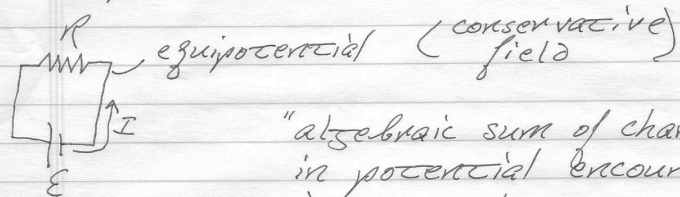 R
equipotential (conservative field)
I
"algebraic sum of
in potential
ε